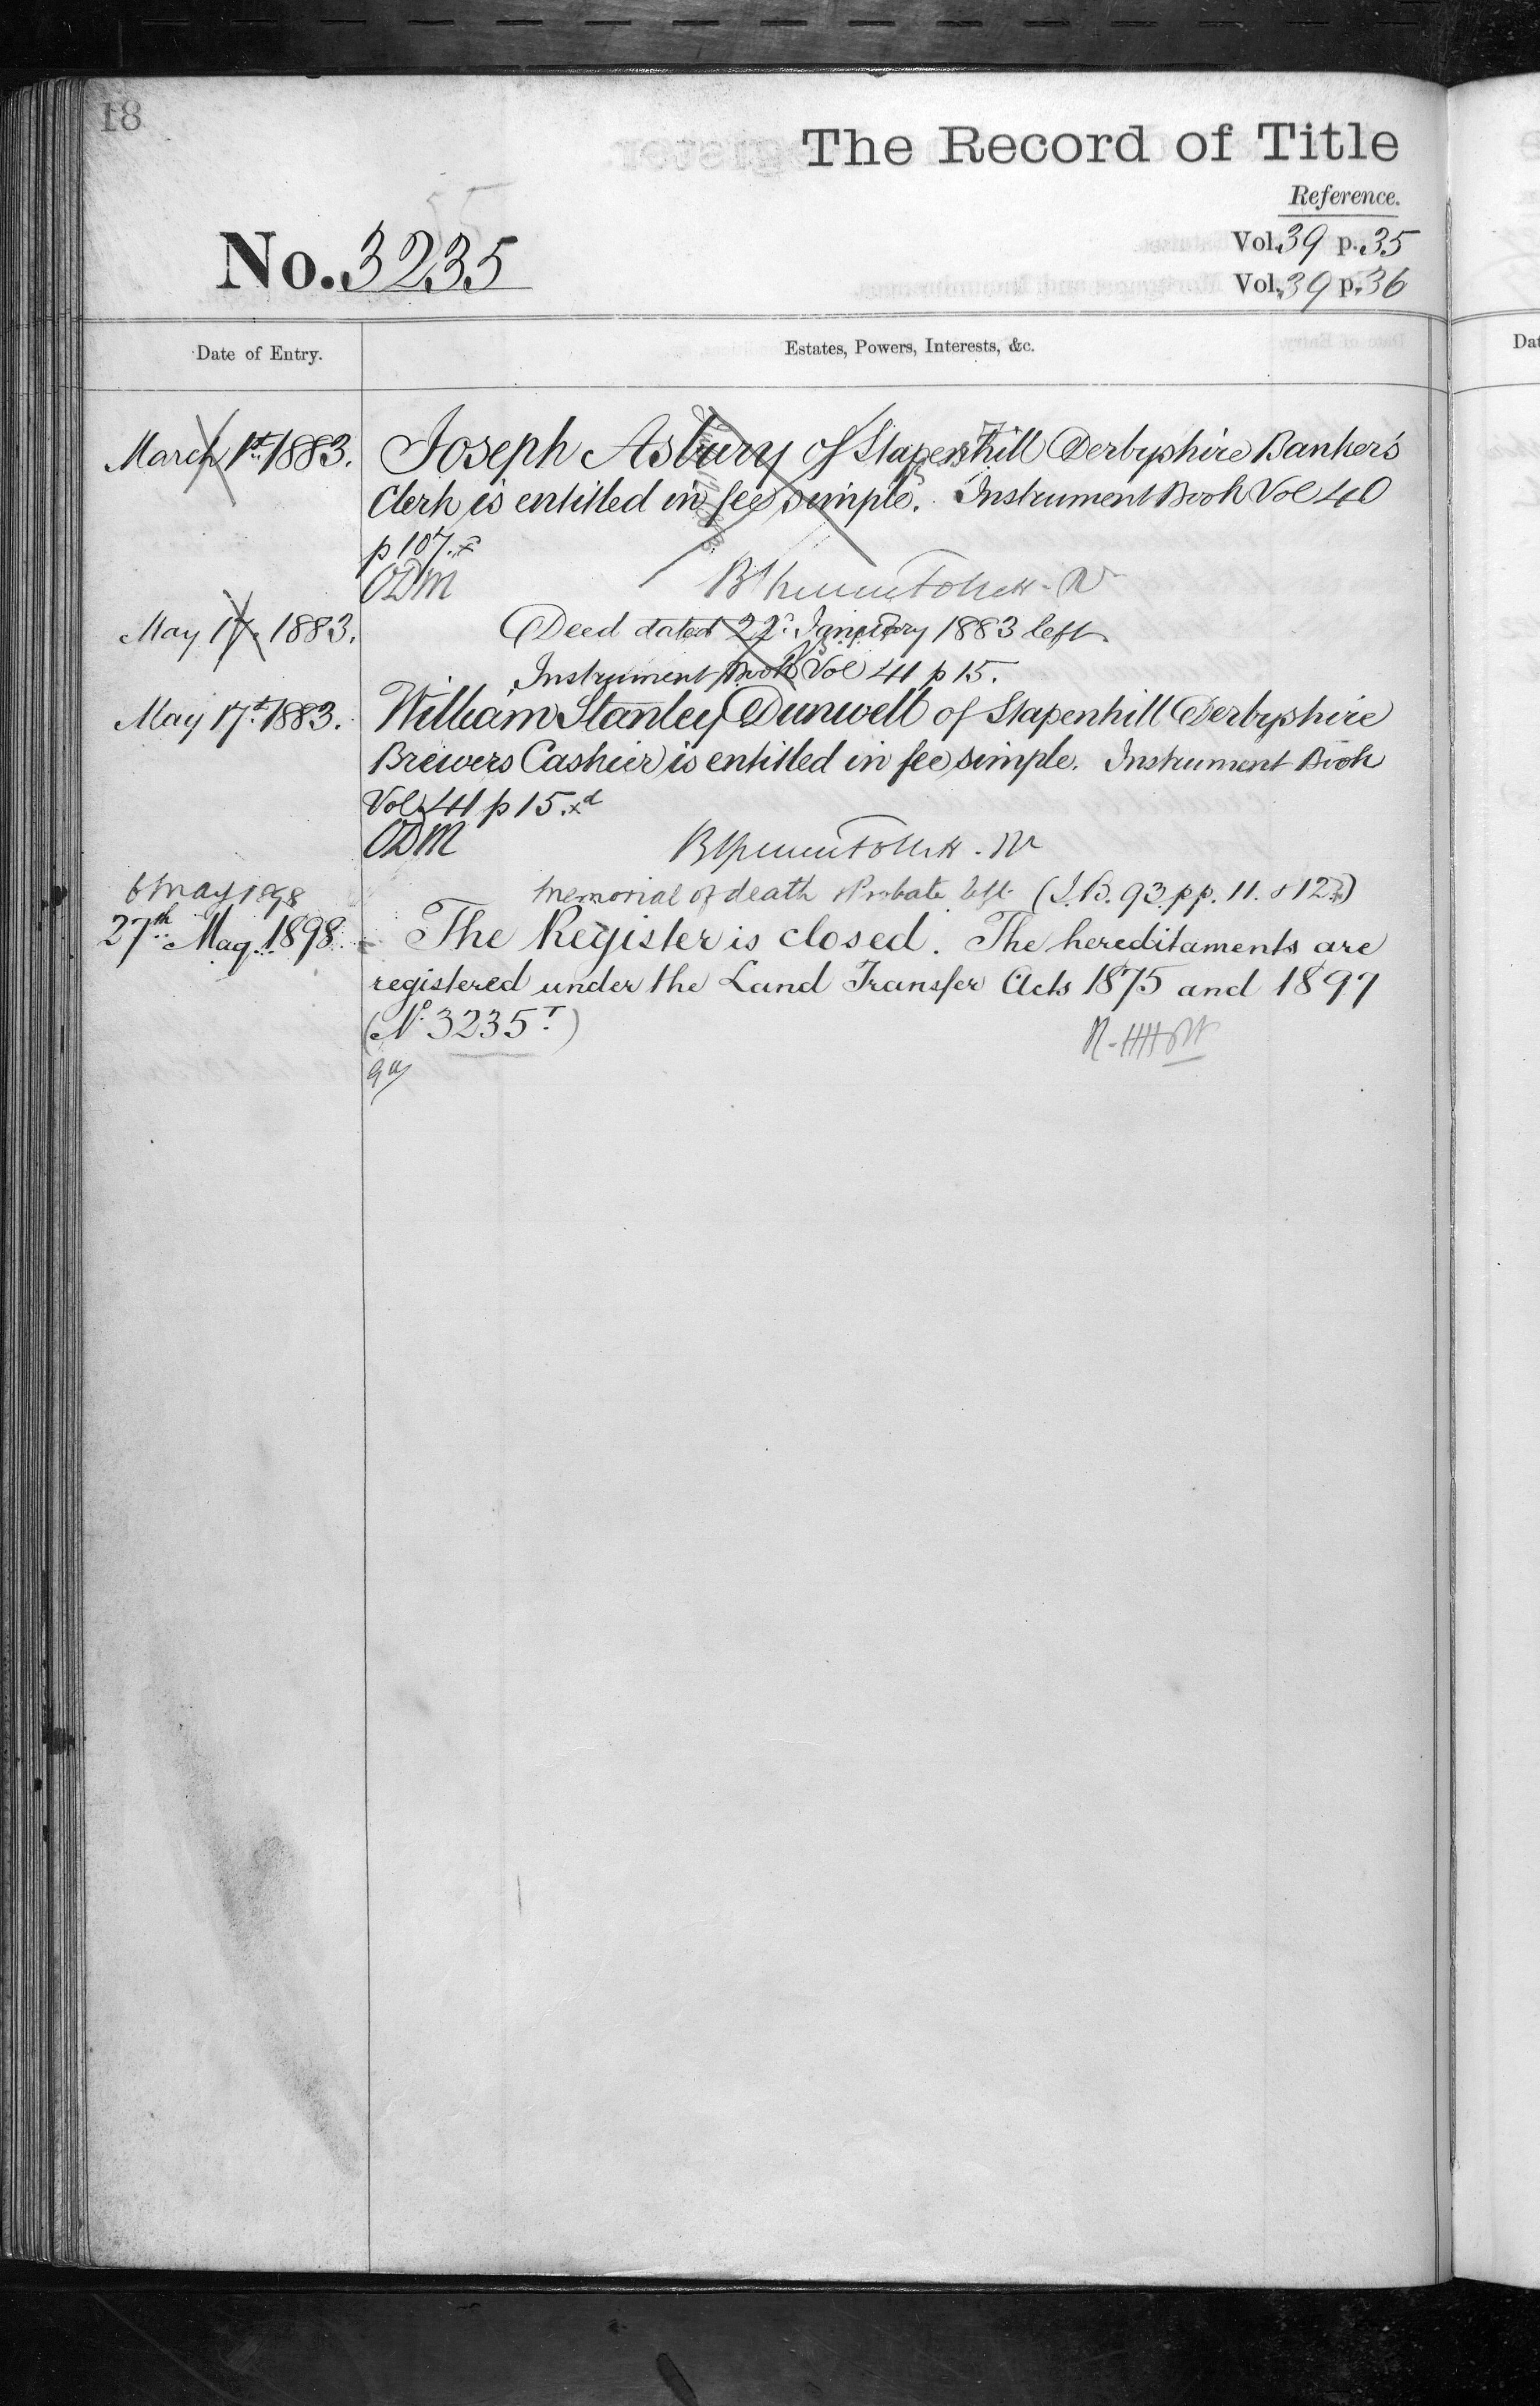 18
The Record of Title
Reference.
No. 3235
Vol. 39 p. 35
Vol. 39 p. 36
Date of Entry.
Estates, Powers, Interests, &c.
March 1st 1883.
Joseph Asbury of Stapenhill Derbyshire Banker's
Clerk is entitled in fee simple. Instrument Book Vol 40
p 107.
ODM
May 17. 1883.
Deed dated 22d January 1883 left
Instrument Book Vol 41 p 15.
May 17th 1883.
William Stanley Dunwell of Stapenhill Derbyshire
Brewers Cashier is entitled in fee simple. Instrument Book
Vol 41 p 15.
ODM
6 May 1898
Memorial of death & Probate left (I.B. 93 pp. 11. & 12)
27th May 1898
The Register is closed. The hereditaments are
registered under the Land Transfer Acts 1875 and 1897
(No. 3235T)